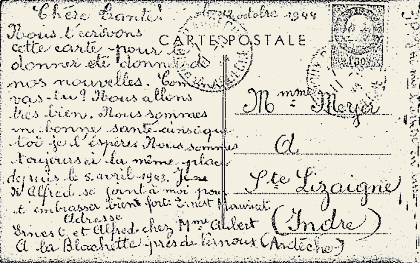 octobre 1944
Chère Tante!
Nous t'écrivons
cette carte pour te
donner et de
nos nouvelles. Com
vas-tu? Nous allons
très bien. Nous sommes
en bonne santé ainsi que
toi je l'espère. Nous sommes
toujours à la même place
depuis le 8 avril 1943. Je
Alfred se joint à moi pour
et embrasser bien fort. Ernest
Adresse
Ernest et Alfred chez Mme Aubert
A la Blachette près de Vernoux (Ardèche)
CARTE POSTALE
Mme Meyer
à
Ste Lizaigne
(Indre)